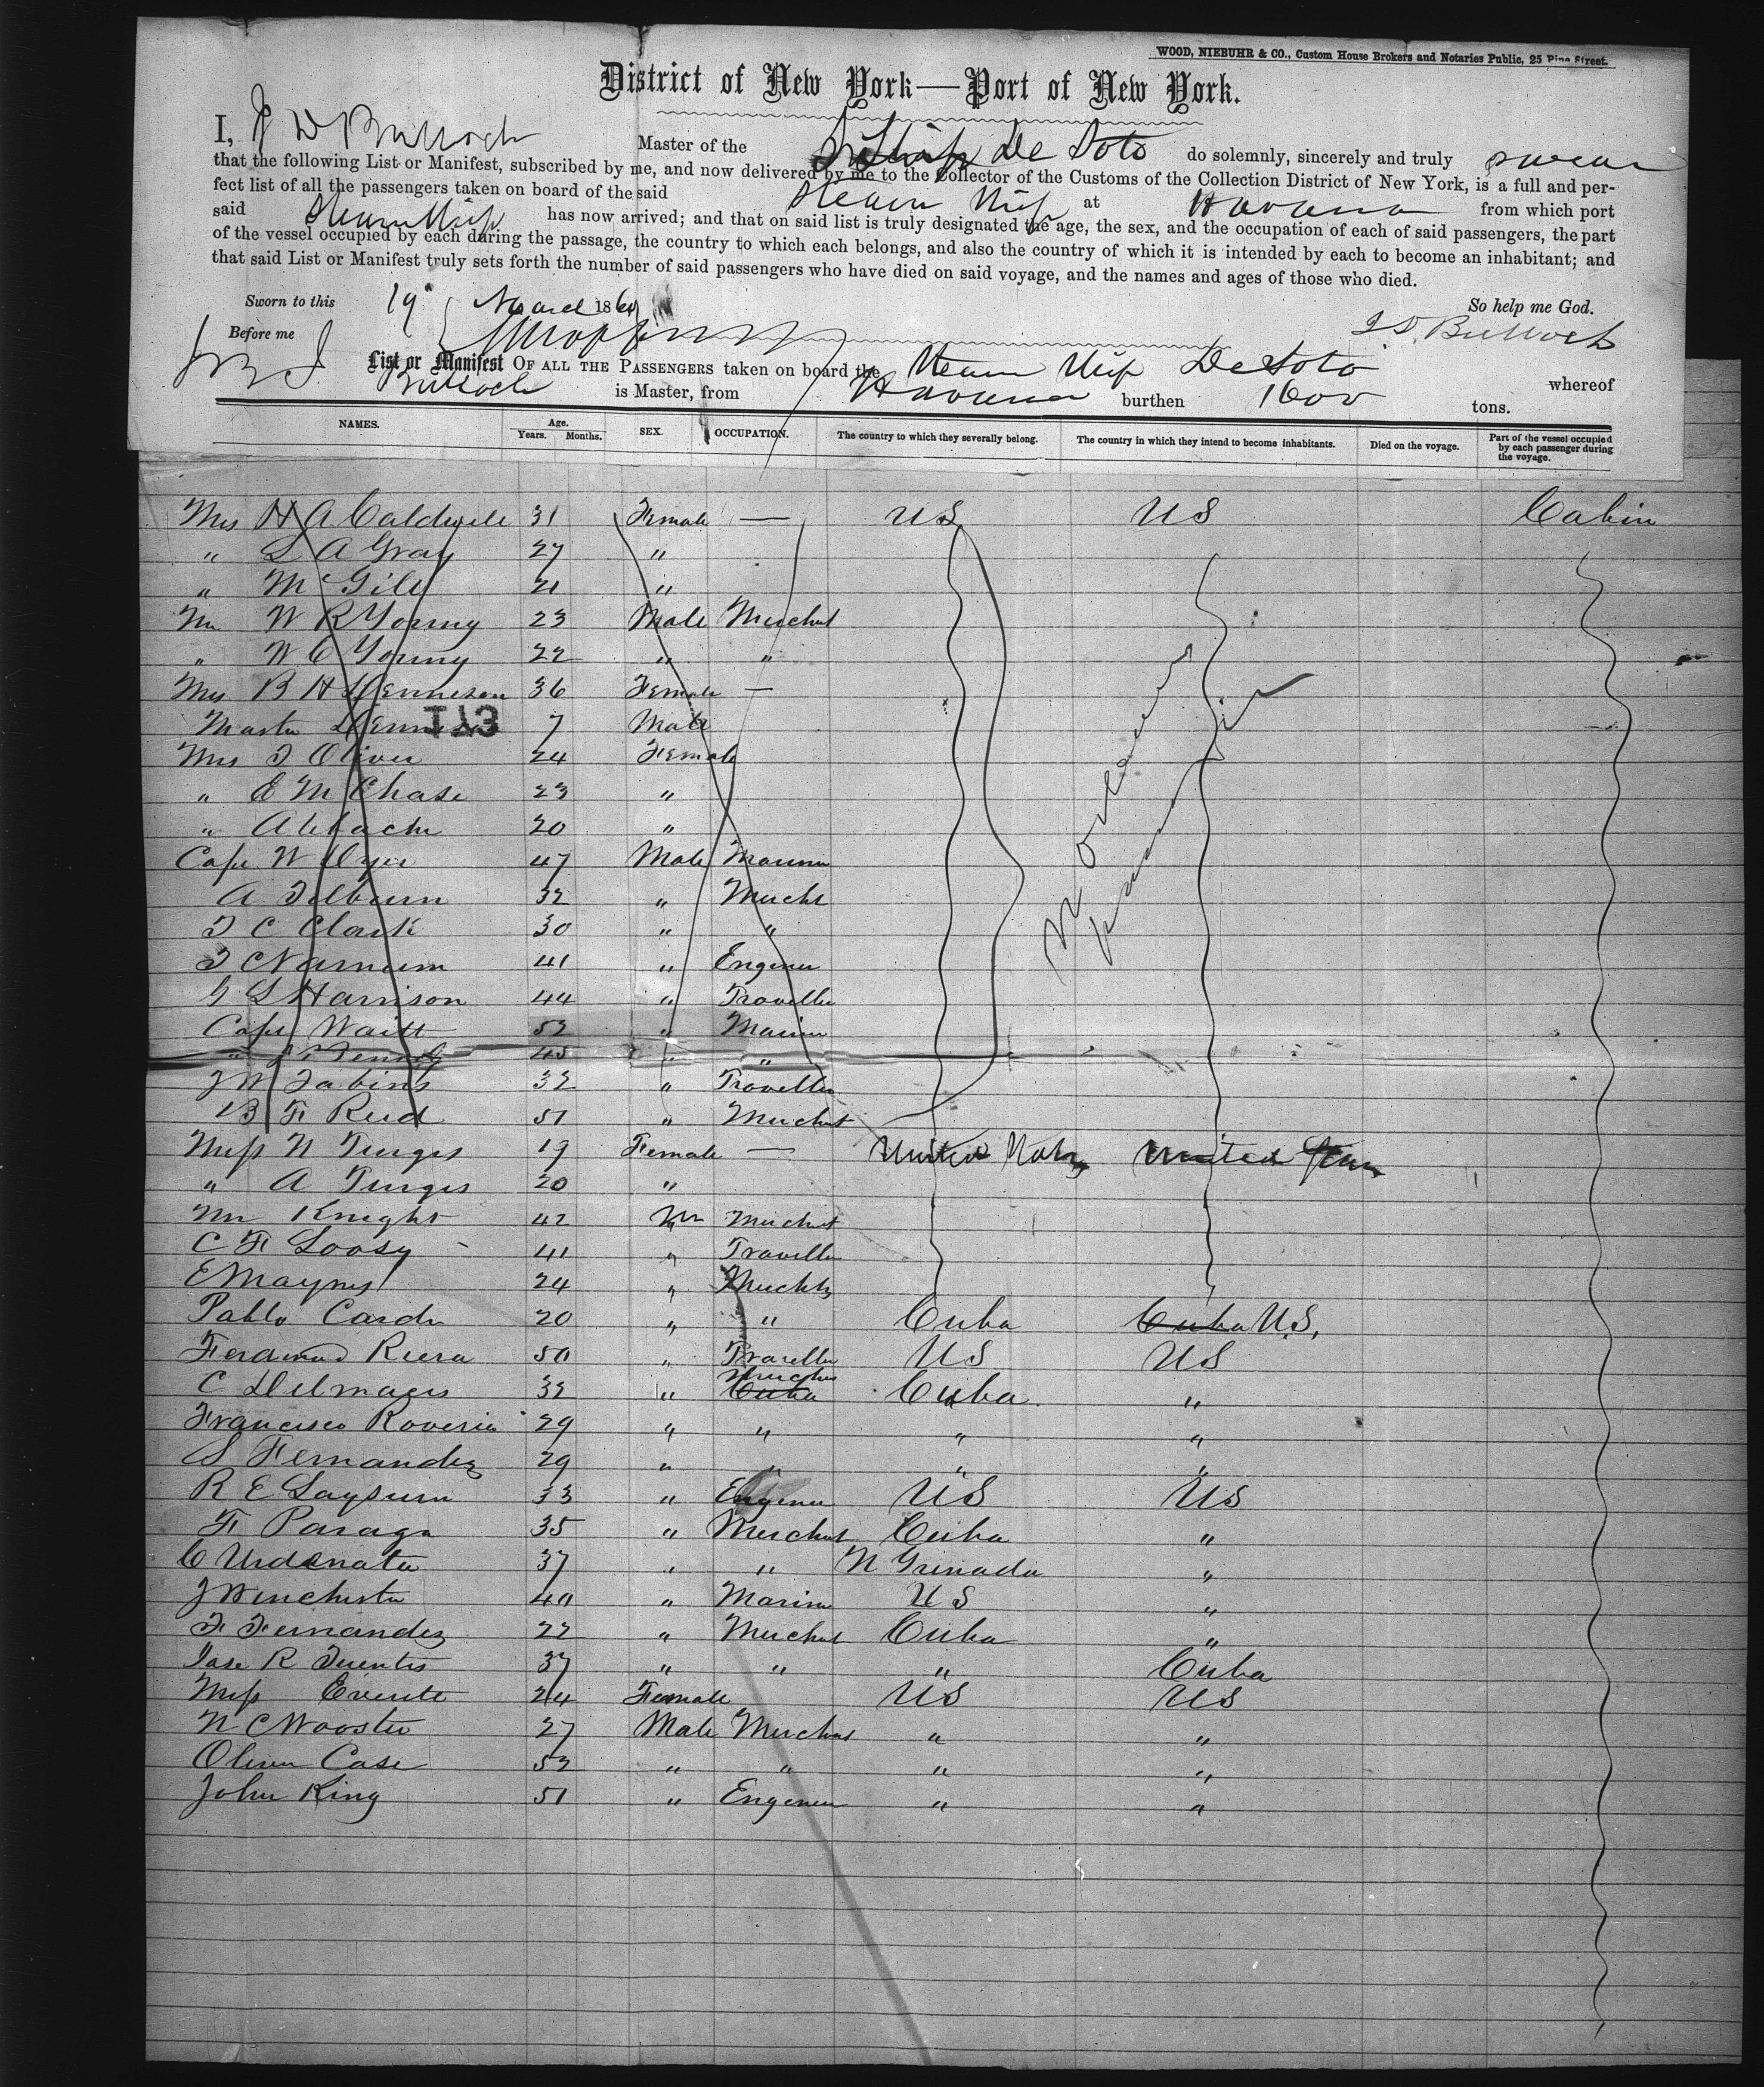 WOOD, NIEBUHR & CO., Custom House Brokers and Notaries Public, 25 Pine Street.
District of New York—Port of New York.
I, J D Bulloch Master of the S Ship De Soto do solemnly, sincerely and truly swear
that the following List or Manifest, subscribed by me, and now delivered by me to the Collector of the Customs of the Collection District of New York, is a full and per-
fect list of all the passengers taken on board of the said Steam Ship at Havana from which port
said Steam Ship has now arrived; and that on said list is truly designated the age, the sex, and the occupation of each of said passengers, the part
of the vessel occupied by each during the passage, the country to which each belongs, and also the country of which it is intended by each to become an inhabitant; and
that said List or Manifest truly sets forth the number of said passengers who have died on said voyage, and the names and ages of those who died.
Sworn to this 19 March 1860 So help me God.
Before me J D. Bulloch
List or Manifest OF ALL THE PASSENGERS taken on board the Steam Ship De Soto whereof
J D Bulloch is Master, from Havana burthen 1600 tons.
NAMES. Age. Years. Months. SEX. OCCUPATION. The country to which they severally belong. The country in which they intend to become inhabitants. Died on the voyage. Part of the vessel occupied by each passenger during the voyage.
Mrs H A Caldwell 31 Female — US US Cabin
" L A Gray 27 "
" McGill 21 "
Mr W R Young 23 Male Merchnt
" W C Young 22 " "
Mrs B H Dennison 36 Female —
Master Dennison 7 Male
173
Mrs J Oliver 24 Female
" E M Chase 23 "
" A 20 "
Capt W Dyer 47 Male Mariner
A Tilburn 32 " Mercht
J C Clark 30 " "
J C Varnum 41 " Engineer
G L Harrison 44 " Traveller
Capt Waitt 52 " Mariner
" 45 " "
J W Tabins 32 " Traveller
B F Reed 51 " Merchnt
Miss N Turges 19 Female — United States United States
" A Turges 20 "
Mr Knight 42 M Merchnt
C F Loosy 41 " Traveller
E Maynes 24 " Mercht
Pablo Cardr 20 " " Cuba Cuba U.S.
Ferdinand Riera 50 " Traveller US US
C Delmages 32 " Merchnt Cuba Cuba "
Francisco Roveria 29 " " " "
S Fernandez 29 " " " "
R E Laysurn 33 " Engineer US US
F Paraga 35 " Merchnt Cuba "
C Urdanata 37 " " N Grenada "
J Winchester 40 " Mariner US "
F Fernandez 22 " Merchnt Cuba "
Jose R Fuentes 37 " " " Cuba
Miss Everite 24 Female US US
N C Wooster 27 Male Merchnt " "
Oliver Case 52 " " " "
John King 51 " Engineer " "